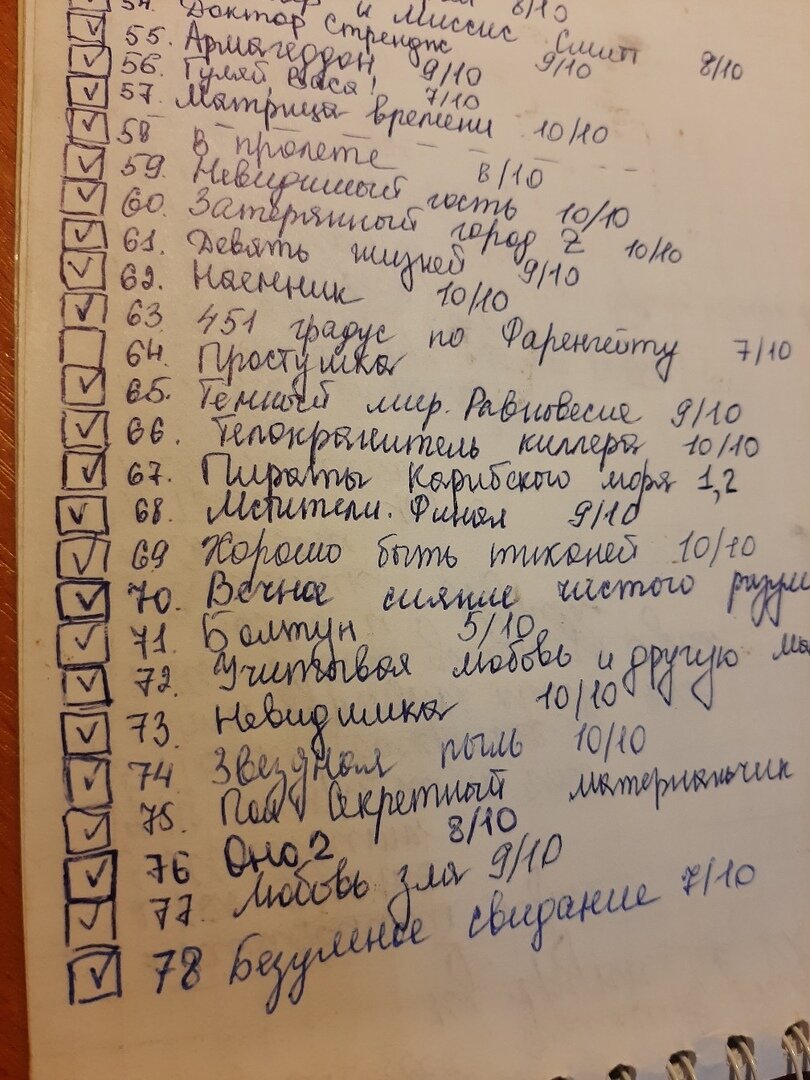 54. и Миссис Смит 8/10
55. Доктор Стрендж 9/10
56. Армагеддон 9/10
57. Гуляй, Вася! 7/10
Матрица времени 10/10
58 В пролете 8/10
59. Невидимый гость 10/10
60. Затерянный город Z 10/10
61. Девять жизней 9/10
62. Наемник 10/10
63 451 градус по Фаренгейту 7/10
64. Простушка
65. Темный мир. Равновесие 9/10
66. Телохранитель киллера 10/10
67. Пираты Карибского моря 1,2
68. Мстители. Финал 9/10
69 Хорошо быть тихоней 10/10
70. Вечное сияние чистого разум
71. Болтун 5/10
72. Учитывая любовь и другую
73. Невидимка 10/10
74 Звездная пыль 10/10
75. Пол. Секретный материальчик
76 Оно 2 8/10
77. Любовь зла 9/10
78 Безумное свидание 7/10